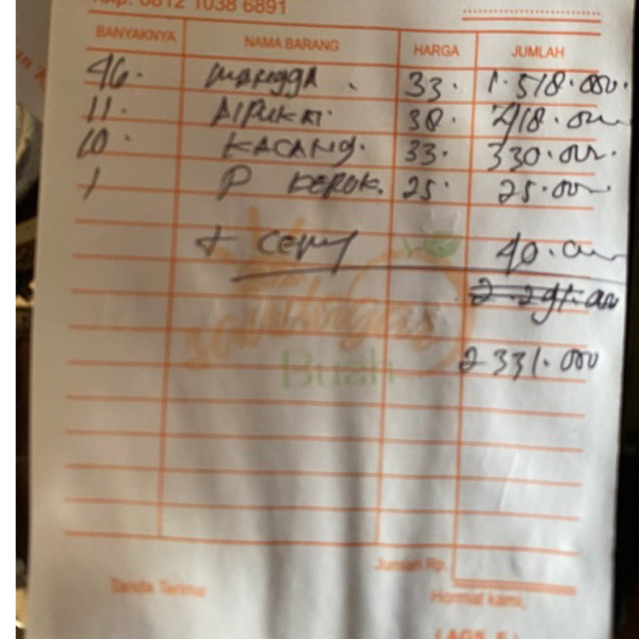 Telp. 0812 1038 6891
BANYAKNYA NAMA BARANG HARGA JUMLAH
46. MANGGA. 33. 1.518.000.
11. AlPUKAT. 38. 418.000
10. KACANG. 33. 330.000.
1 P KEROK. 25. 25.000
+ 40.000
2.291.000
2 331.000
Buah
Jumlah Rp.
Tanda Terima
Hormat kami,